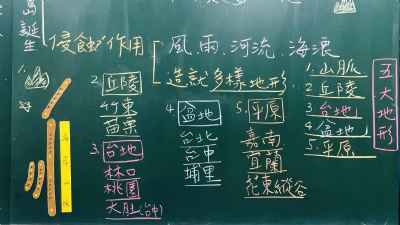 島誕生
侵蝕作用
風、雨、河流、海浪
造就多樣地形
1.
2. 丘陵
竹東
苗栗
3. 台地
林口
桃園
大肚(台中)
4. 盆地
台北
台中
埔里
5. 平原
嘉南
宜蘭
花東縱谷
五大地形
1. 山脈
2. 丘陵
3. 台地
4. 盆地
5. 平原